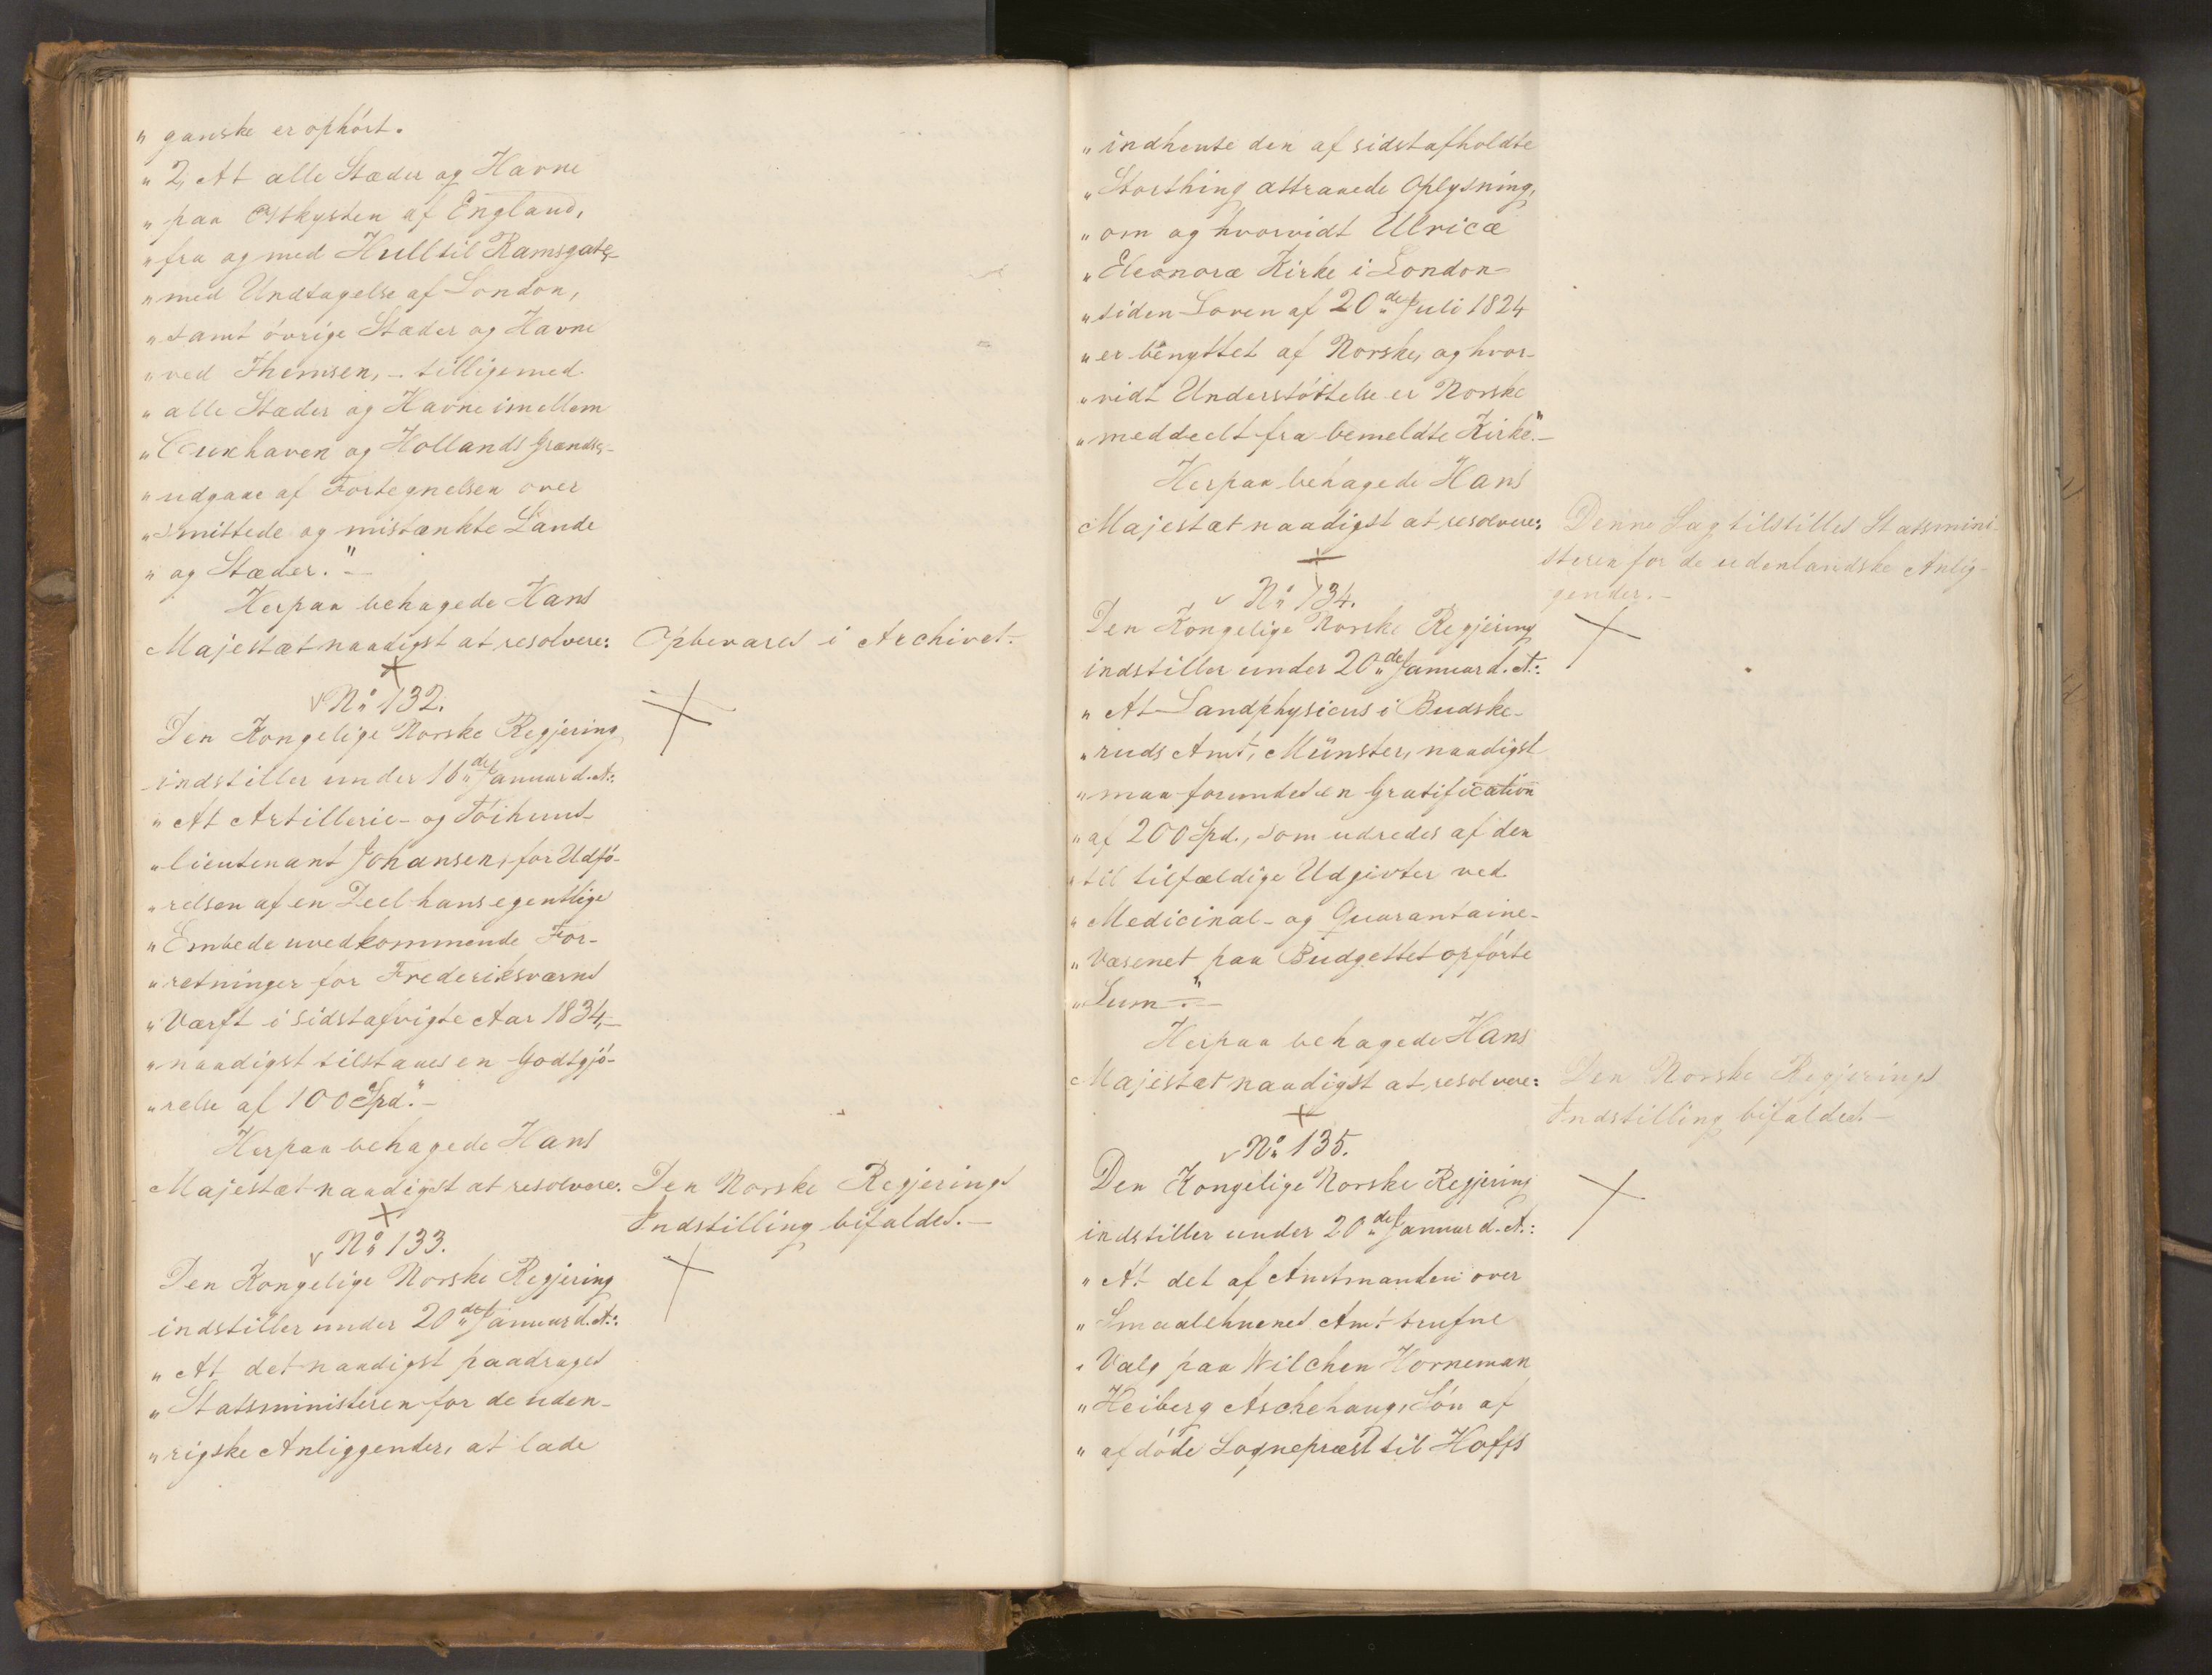 „ ganske er ophórt.
„ 2, At alle Stæder og Havne
„ paa Østkysten af England,
„ fra og med Hull til Ramsgate,
„ med Undtagelse af London,
„ samt óvrige Stæder og Havne
„ ved Themsen, – tilligemed
„ alle Stæder og Havne imellem
„ Cuxhaven og Hollands Grændse,–
„ udgaae af Fortegnelsen over
„ smittede og mistænkte Lande
„ og Stæder."–
Herpaa behagede Hans
Majestæt naadigst at resolvere:
Opbevares i Archivet.–
No 132.
Den Kongelige Norske Regjering
indstiller under 16de Januar d. A.:
„ At Artillerie- og Tóihuus-
„ lieutenant Johansen, for Udfó-
„ relsen af en Deel hans egentlige
„ Embede uvedkommende For-
„ retninger for Frederiksværns
„ Værft i sidstafvigte Aar 1834,–
„ naadigst tilstaaes en Godtgjó-
„ relse af 100 Spd."–
Herpaa behagede Hans
Majestæt naadigst at resolvere:
Den Norske Regjerings
Indstilling bifaldes.–
No 133.
Den Kongelige Norske Regjering
indstiller under 20de Januar d. A.:
„ At det naadigst paadrages
„ Statsministeren for de uden-
„ rigske Anliggender, at lade
„ indhente den af sidstafholdte
„ Storthing attraaede Oplysning,
„ om og hvorvidt Ulricæ
„ Eleonoræ Kirke i London
„ siden Loven af 20de Juli 1824
„ er benyttet af Norske, og hvor-
„ vidt Understóttelse er Norske
„ meddeelt fra bemeldte Kirke."–
Herpaa behagede Hans
Majestæt naadigst at resolvere:
Denne Sag tilstilles Statsmini-
steren for de udenlandske Anlig-
gender.–
No 134.
Den Kongelige Norske Regjering
indstiller under 20de Januar d. A.:
„ At Landphysicus i Budske-
„ ruds Amt, Münster, naadigst
„ maa forundes en Gratification
„ af 200 Spd., som udredes af den
„ til tilfældige Udgivter ved
„ Medicinal- og Quarantaine-
„ Væsenet paa Budgettet opfórte
„ Sum."–
Herpaa behagede Hans
Majestæt naadigst at resolvere:
Den Norske Regjerings
Indstilling bifaldes.–
No 135.
Den Kongelige Norske Regjering
indstiller under 20de Januar d. A.:
„ At det af Amtmanden over
„ Smaalehnenes Amt trufne
„ Valg paa Wilchen Horneman
„ Heiberg Aschehoug, Són af
„ afdóde Sognepræst til Hoffs